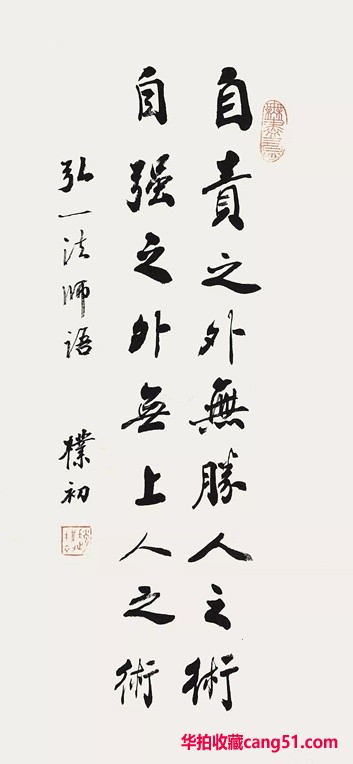 自責之外無勝人之術
自强之外無上人之術
弘一法師語 樸初
华拍收藏cang51.com